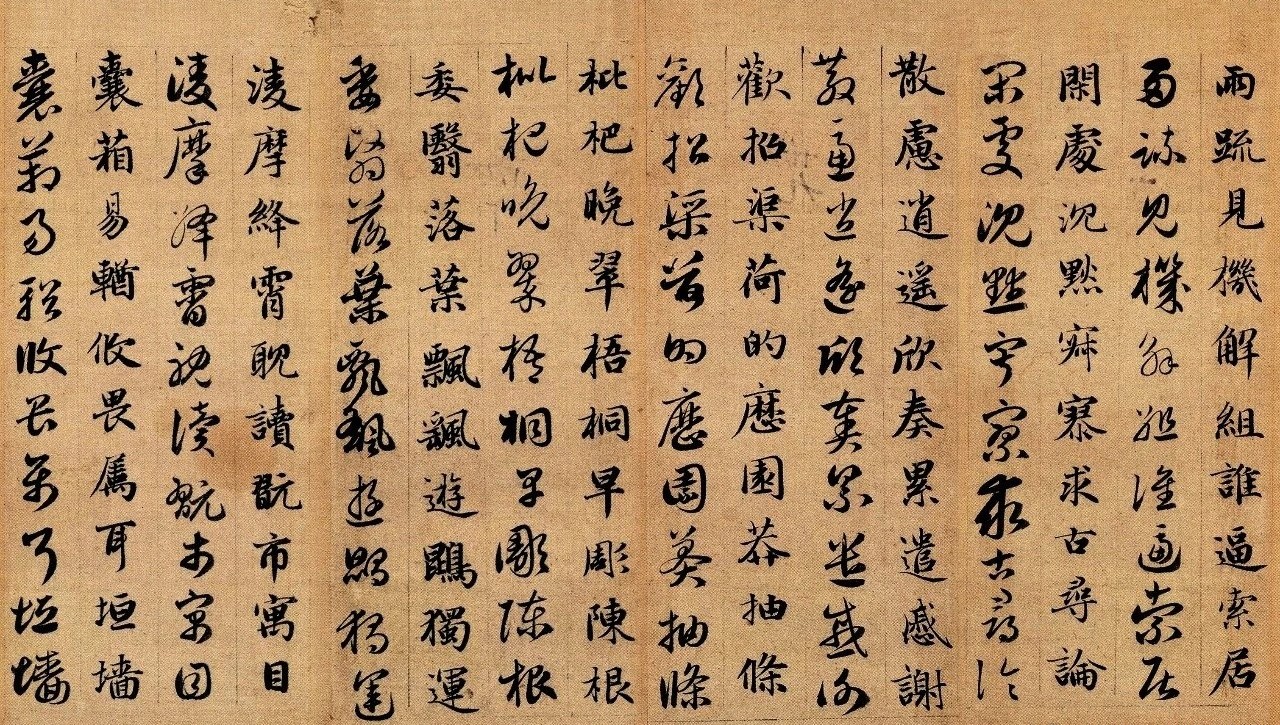 兩疏見機解組誰逼索居
兩疏見機解組誰逼索居
閑處沉默寂寥求古尋論
閑處沉默寂寥求古尋論
散慮逍遙欣奏累遣慼謝
散慮逍遙欣奏累遣慼謝
歡招渠荷的歷園莽抽條
歡招渠荷的歷園莽抽條
枇杷晚翠梧桐早彫陳根
枇杷晚翠梧桐早彫陳根
委翳落葉飄颻遊鵾獨運
委翳落葉飄颻遊鵾獨運
凌摩絳霄耽讀翫市寓目
凌摩絳霄耽讀翫市寓目
囊箱易輶攸畏屬耳垣墻
囊箱易輶攸畏屬耳垣墻